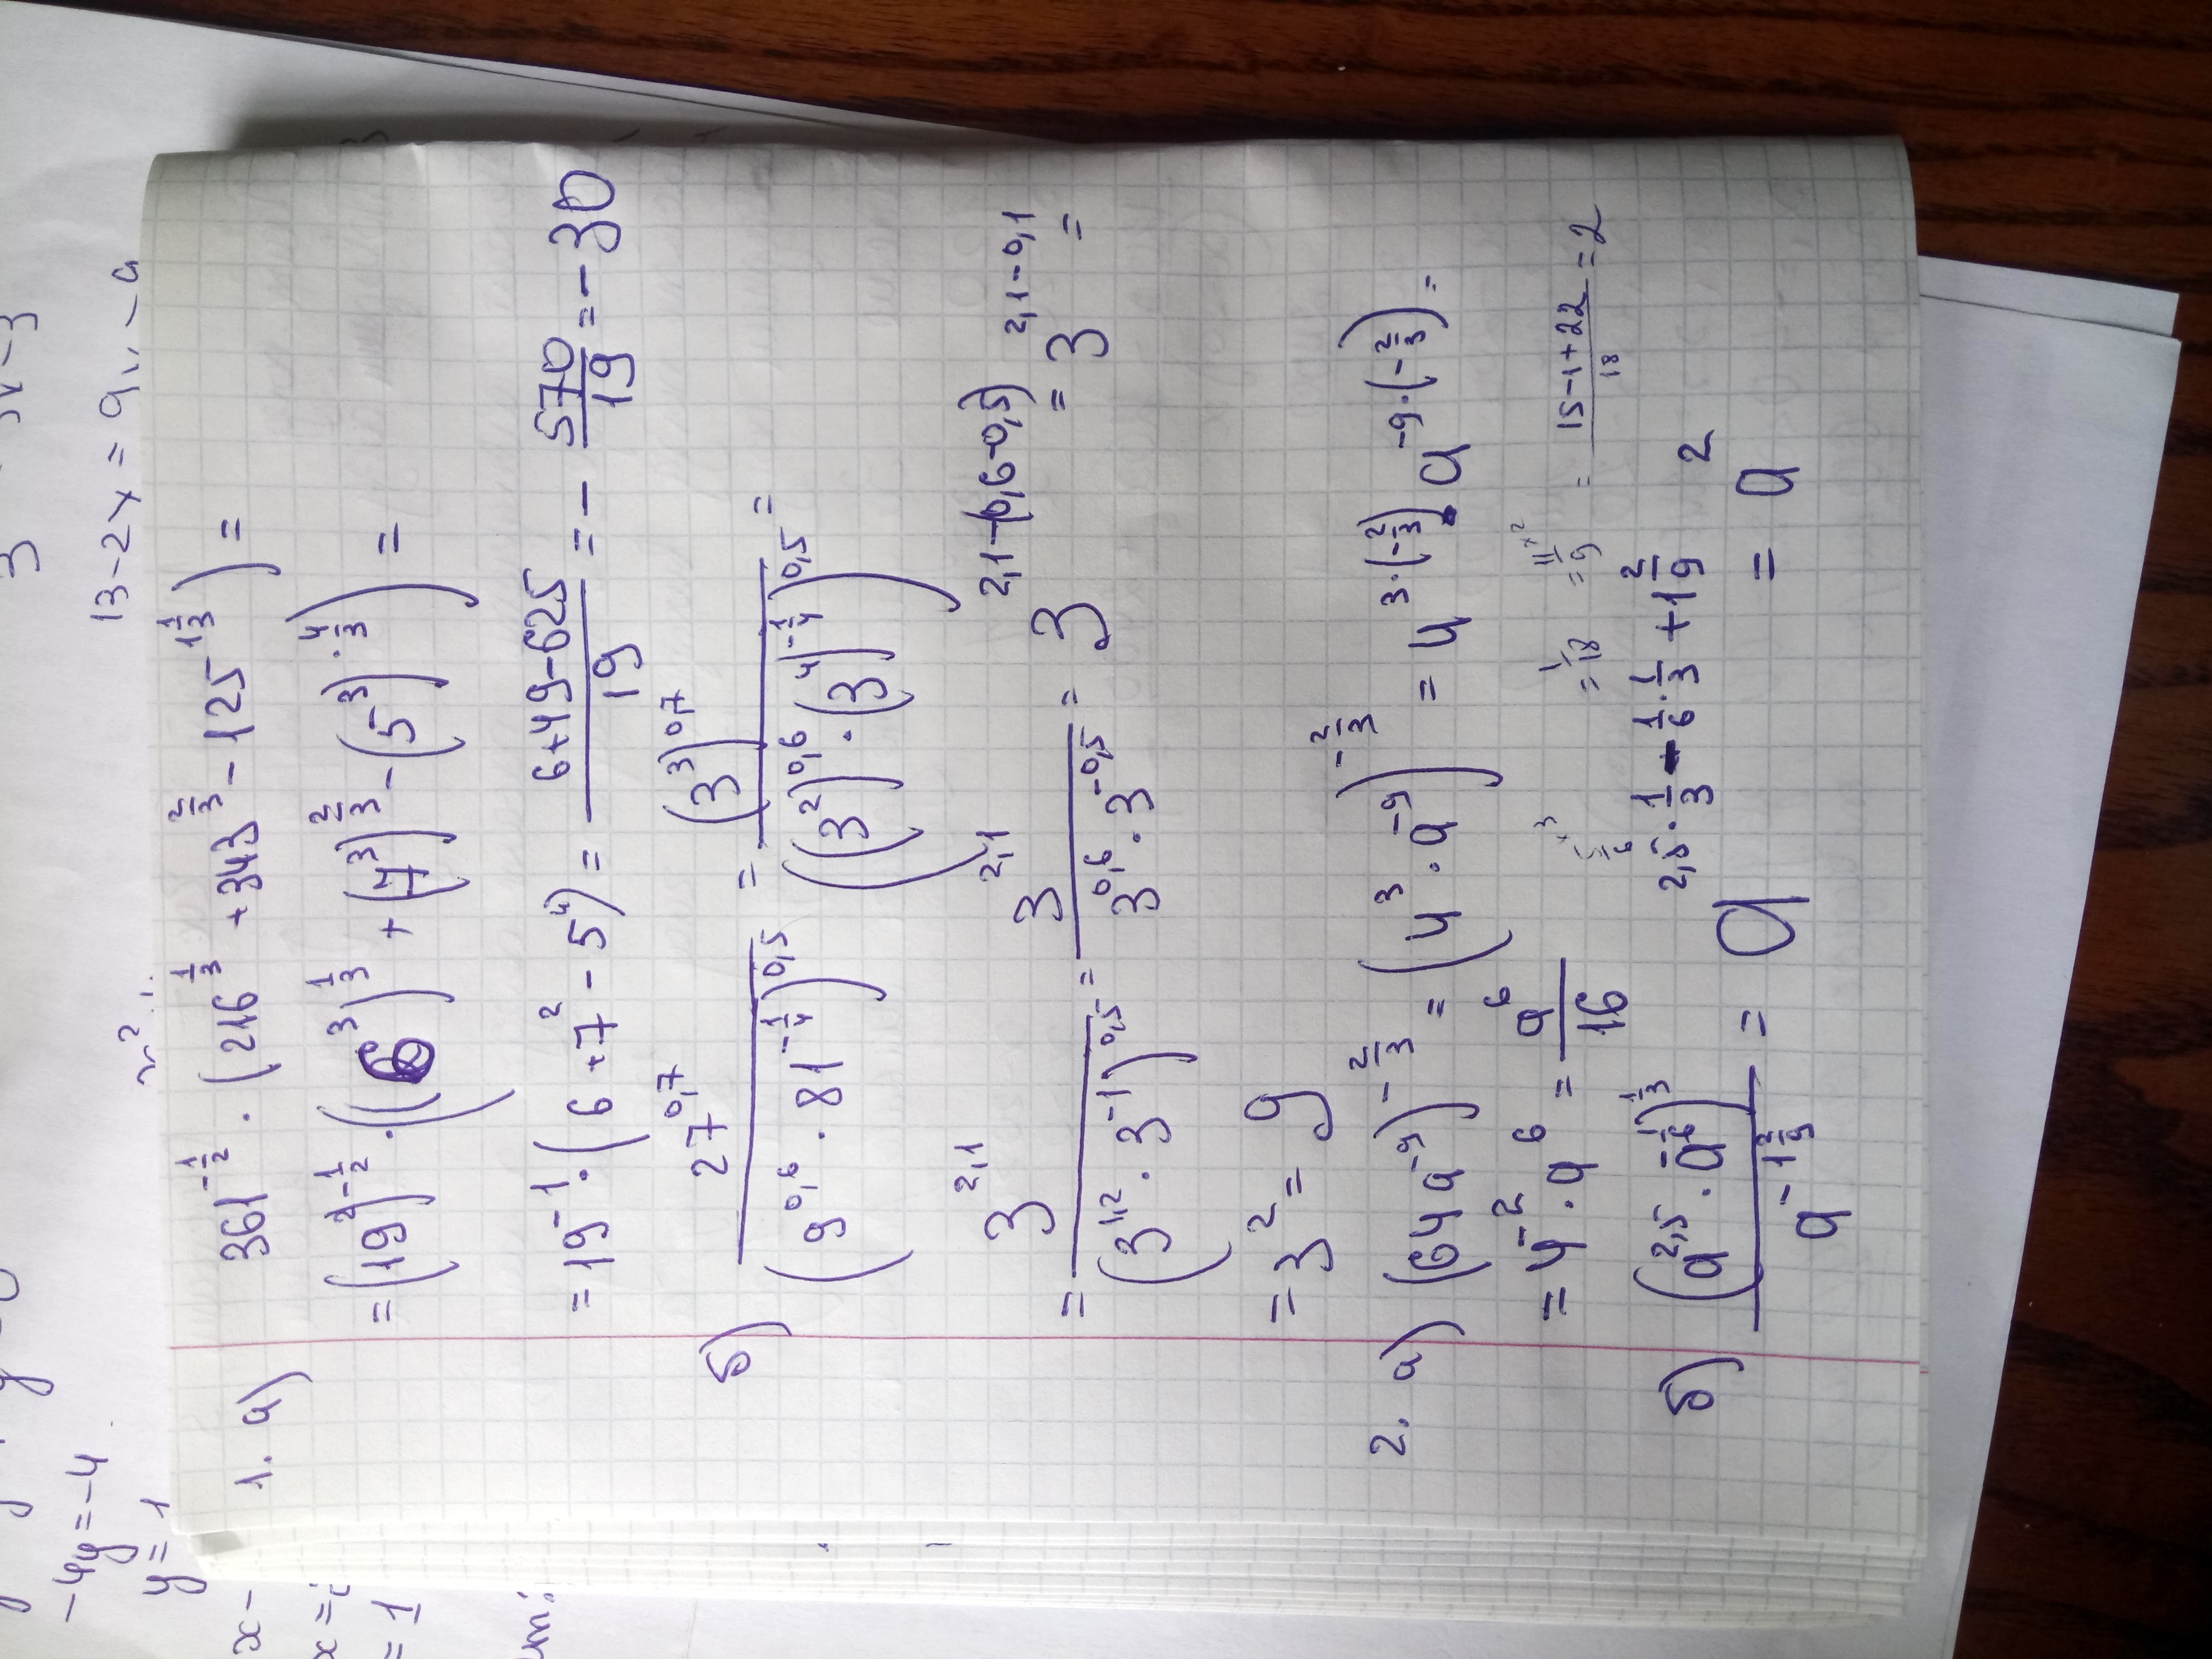 1. а) 361^{-\frac{1}{2}} · (216^{\frac{1}{3}} + 343^{\frac{2}{3}} - 125^{1\frac{1}{3}}) =
= (19^2)^{-\frac{1}{2}} · ((6^3)^{\frac{1}{3}} + (7^3)^{\frac{2}{3}} - (5^3)^{·\frac{4}{3}}) =
= 19^{-1} · (6 + 7^2 - 5^4) = \frac{6+49-625}{19} = - \frac{570}{19} = -30
б) \frac{27^{0,7}}{(9^{0,6} · 81^{-\frac{1}{4}})^{0,5}} = \frac{(3^3)^{0,7}}{((3^2)^{0,6} · (3^4)^{-\frac{1}{4}})^{0,5}} =
= \frac{3^{2,1}}{(3^{1,2} · 3^{-1})^{0,5}} = \frac{3^{2,1}}{3^{0,6} · 3^{-0,5}} = 3^{2,1-(0,6-0,5)} = 3^{2,1-0,1} =
= 3^2 = 9
2. а) (64a^{-9})^{-\frac{2}{3}} = (4^3 · a^{-9})^{-\frac{2}{3}} = 4^{3·(-\frac{2}{3})} · a^{-9·(-\frac{2}{3})} =
= 4^{-2} · a^6 = \frac{a^6}{16}
= \frac{1}{18} = \frac{11}{9}^{×2} = \frac{15-1+22}{18} = 2
б) \frac{(a^{2,5} · a^{-\frac{1}{6}})^{\frac{1}{3}}}{a^{-1\frac{2}{9}}} = a^{2,5·\frac{1}{3} - \frac{1}{6}·\frac{1}{3} + 1\frac{2}{9}} = a^2
13-2x = 9
-4y = -4
y = 1
x -
x =
= 1